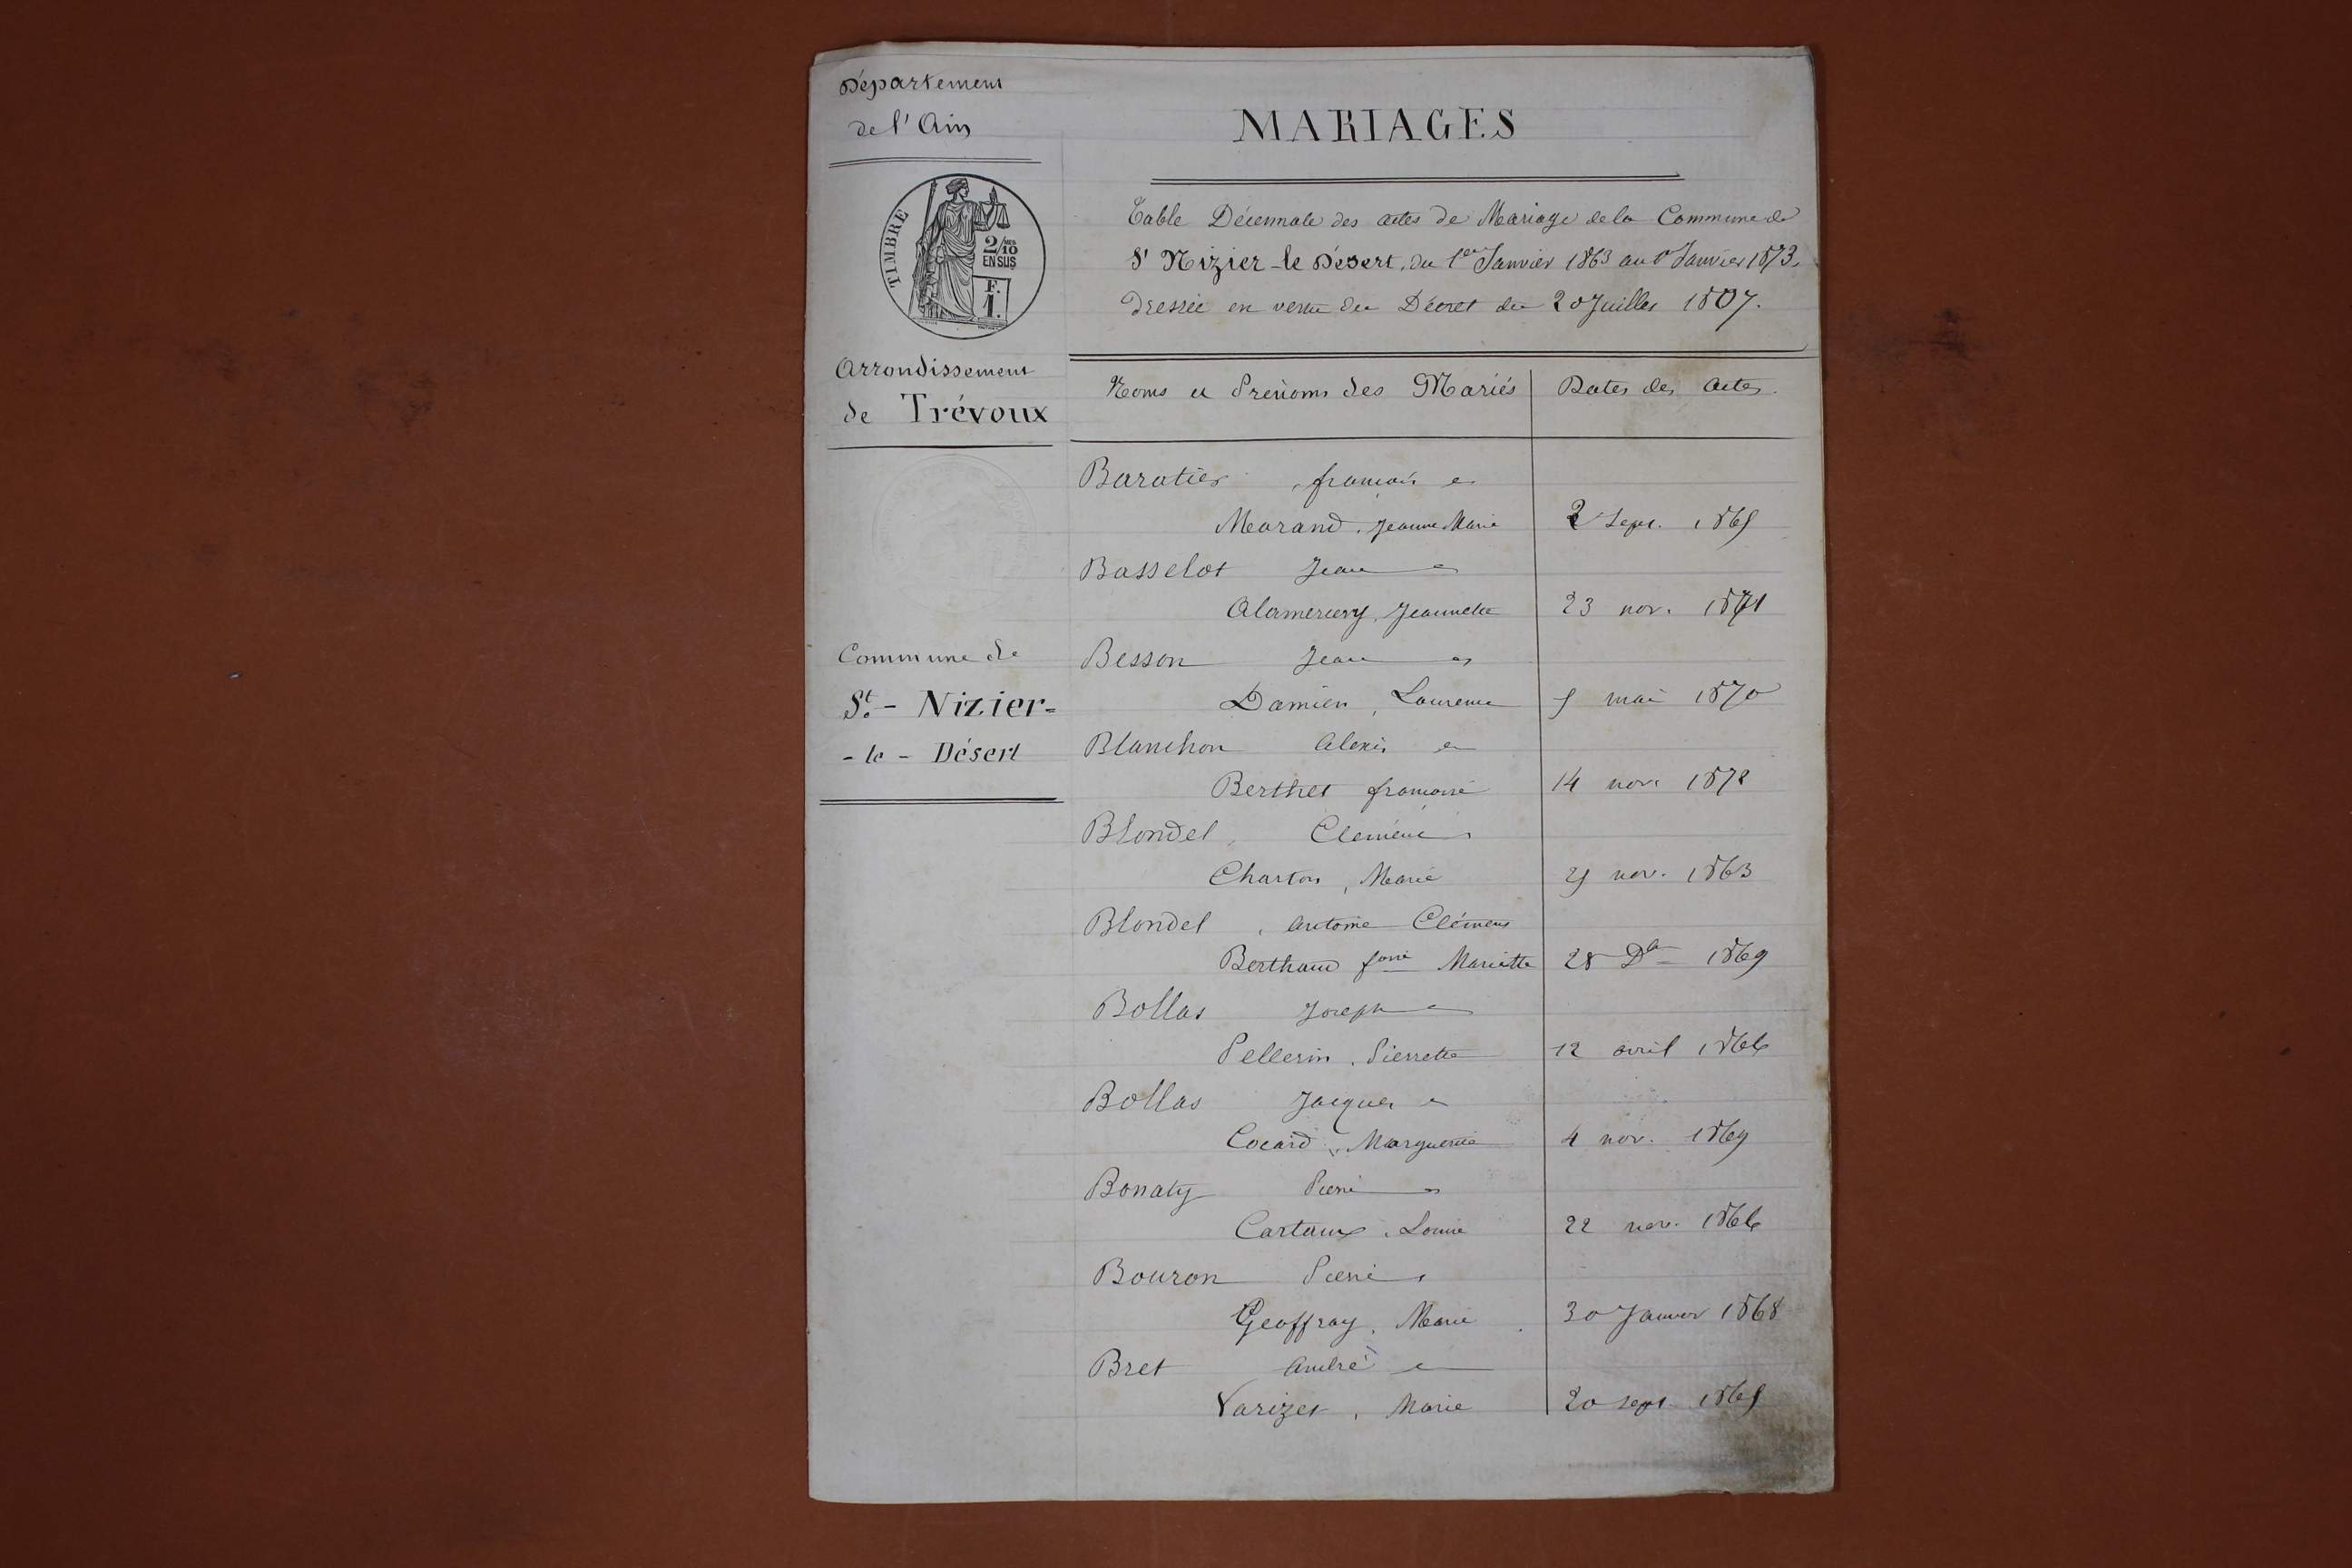 Département
de l'Ain
MARIAGES
TIMBRE
2/10
EN SUS
F.
1.
Table Décennale des actes de Mariage de la Commune de
St Nizier-le Désert, du 1er Janvier 1863 au 1er Janvier 1873.
dressée en vertu du Décret du 20 Juillet 1807.
Arrondissement
de Trévoux
Noms et Prénoms des Mariés
Dates des actes.
Baratier, françois et
Morand, Jeanne Marie 2 Sept. 1865
Basselot Jean et
Alamercery, Jeannette 23 nov. 1871
Commune de
St.- Nizier-
- le - Désert
Besson Jean et
Damien, Laurence 5 mai 1870
Blanchon Alexis et
Berthet françoise 14 nov. 1872
Blondel, Clément
Charton, Marie 25 nov. 1863
Blondel, Antoine Clément
Berthaud fçoise Mariette 28 Dbre 1869
Bollas Joseph et
Pellerin, Pierrette 12 avril 1866
Bollas Jacques et
Cocard, Marguerite 4 nov. 1869
Bonaty Pierre et
Cartaux, Louise 22 nov. 1866
Bouron Pierre et
Geoffray, Marie 30 Janvier 1868
Bret André et
Varizet, Marie 20 sept. 1865